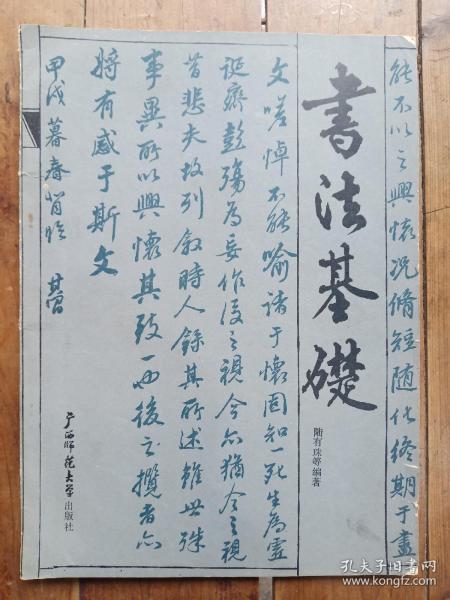 能不以之興懷況脩短随化終期于盡
書法基礎
陆有珠等编著
文嗟悼不能喻諸于懷固知一死生為虛
誕齊彭殤為妄作後之視今亦猶今之視
昔悲夫故列叙時人錄其所述雖世殊
事異所以興懷其致一也後之攬者亦
將有感于斯文
甲戌暮春背臨
广西师范大学出版社
孔夫子旧书网
www.kongfz.com